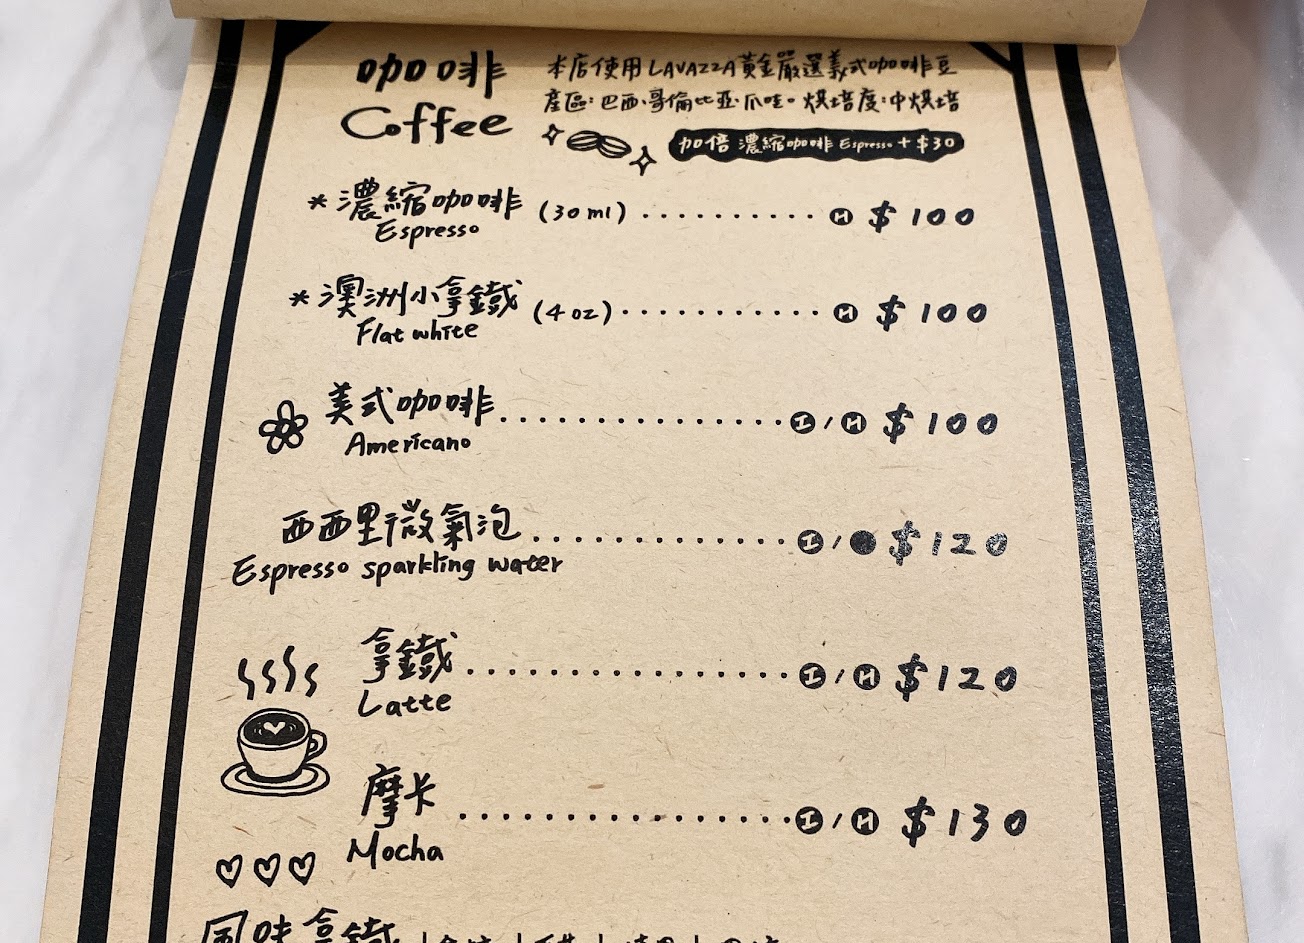 咖啡
Coffee
本店使用LAVAZZA黃金嚴選義式咖啡豆
產區:巴西、哥倫比亞、爪哇。烘培度:中烘培
加倍濃縮咖啡 Espresso + $30
*濃縮咖啡 (30ml) .......... H $100
Espresso
*澳洲小拿鐵 (4oz) ............ H $100
Flat white
美式咖啡 ................ I/H $100
Americano
西西里微氣泡 .............. I/ $120
Espresso sparkling water
拿鐵 .................. I/H $120
Latte
摩卡 .................. I/H $130
Mocha
風味拿鐵